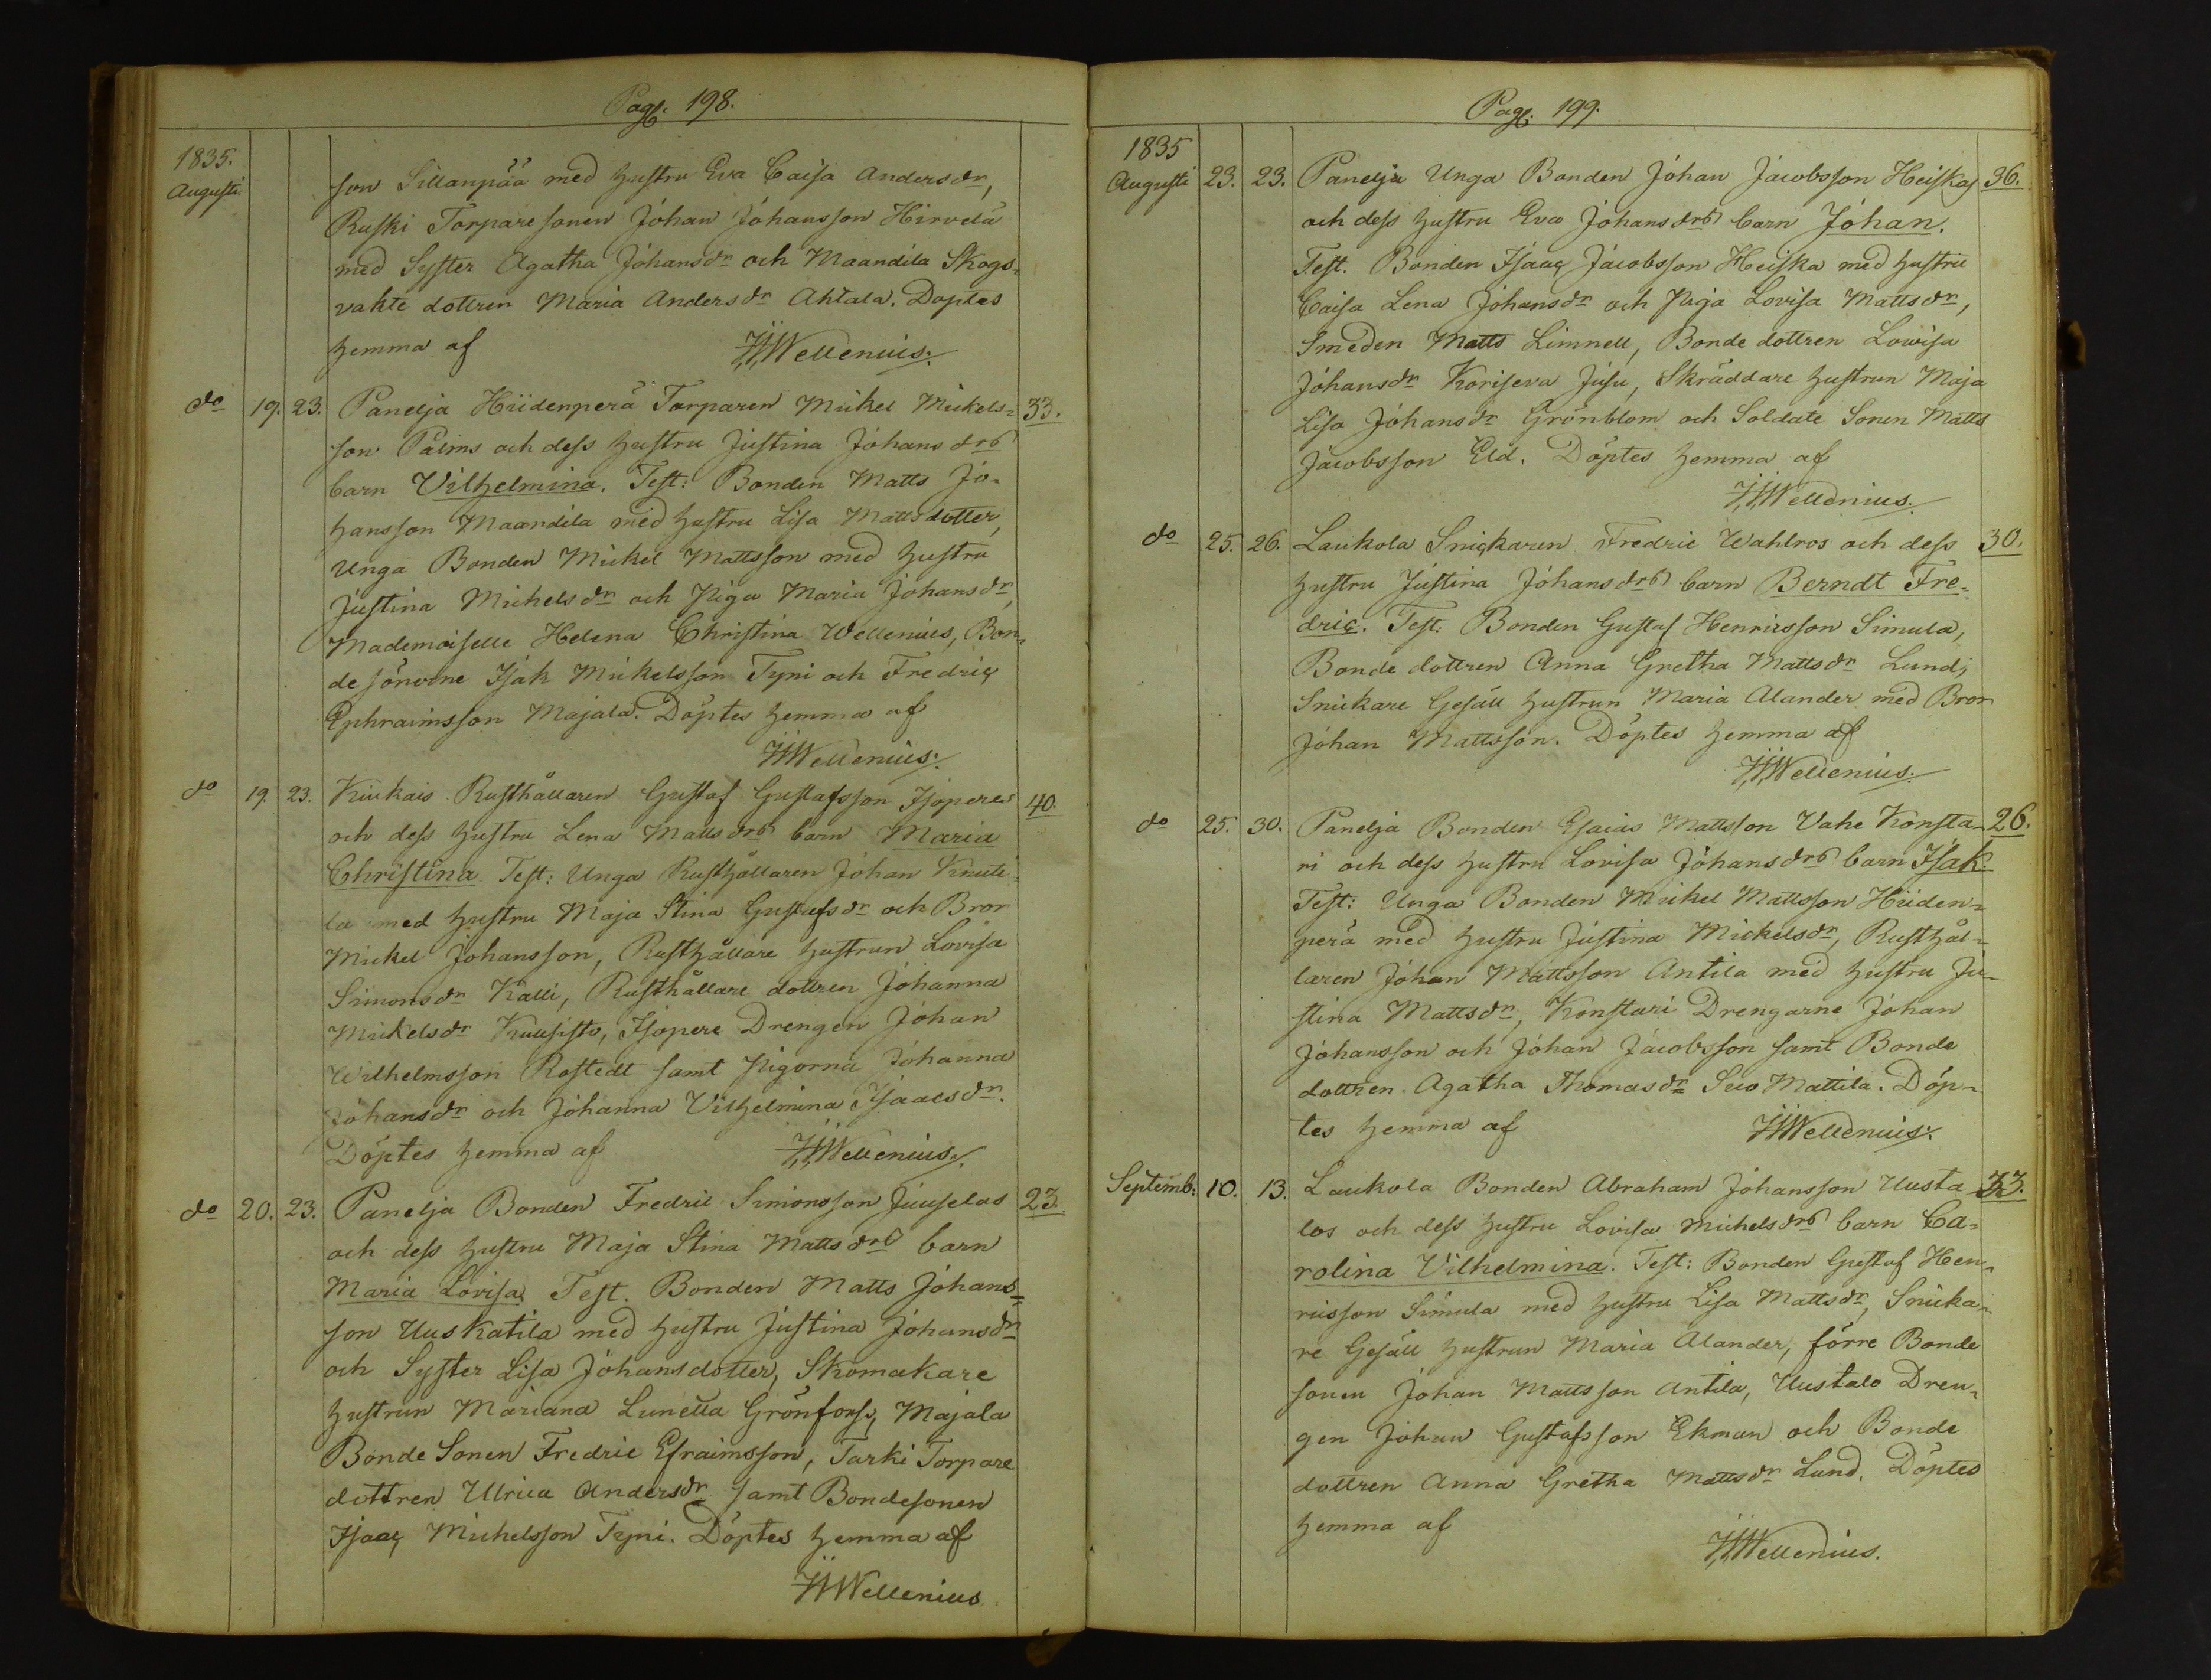 Pag. 198.
1835.
Augusti
son Sillanpää med hustru Eva Caisa Andersdr,
Ruski Torpare sonen Johan Johansson Hirvelä
med Syster Agatha Johansdr och Maandila Skogs-
vakte dottren Maria Andersdr Ahtala. Döptes
hemma af HWellenius.
do 19. 23. Panelja Hiidenperä Torparen Mickel Mickels= 33.
son Palms och dess hustru Justina Johansdrs
barn Vilhelmina. Test: Bonden Matts Jo-
hansson Maandila med hustru Lisa Mattsdotter,
Unga Bonden Mickel Mattsson med hustru
Justina Michelsdr och Piga Maria Johansdr,
Mademoiselle Helena Christina Wellenius, Bon-
de sönerne Isak Mickelsson Tyni och Fredric
Ephraimsson Majala. Döptes hemma af
HWellenius.
do 19. 23. Kiukais Rusthållaren Gustaf Gustafsson Isoperes 40.
och dess hustru Lena Mattsdrs barn Maria
Christina Test: Unga Rusthållaren Johan Knuti-
la med hustru Maja Stina Gustafsdr och Bror
Mickel Johansson, Rusthållare hustrun Lovisa
Simonsdr Kalli, Rusthållare dottren Johanna
Mickelsdr Kuusisto, Isopere Drengen Johan
Wilhelmsson Rostedt samt Pigorna Johanna
Johansdr och Johanna Vilhelmina Isaacsdr.
Döptes hemma af HWellenius.
do 20. 23. Panelja Bonden Fredric Simonsson Juuselas 23.
och dess hustru Maja Stina Mattsdrs barn
Maria Lovisa, Test. Bonden Matts Johans=
son Uuskatila med hustru Justina Johansdr
och Syster Lisa Johansdotter, Skomakare
hustrun Mariana Lunetta Grönfors, Majala
Bonde Sonen Fredric Efraimsson, Tarki Torpare
dottren Ulrica Andersdr samt Bondesonen
Isaac Michelsson Tyni. Döptes hemma af
HWellenius
Pag. 199.
1835
Augusti 23. 23. Panelja Unga Bonden Johan Jacobsson Heiskas 36.
och dess hustru Eva Johansdrs barn Johan.
Test. Bonden Isaac Jacobsson Heiska med hustru
Caisa Lena Johansdr och Piga Lovisa Mattsdr,
Smeden Matts Limnell, Bonde dottren Lowisa
Johansdr Koriseva Jusu, Skräddare hustrun Maja
Lisa Johansdr Grönblom och Soldate Sonen Matts
Jacobsson Eld. Döptes hemma af
HWellenius.
do 25. 26. Laukola Snickaren Fredric Wahlros och dess 30.
hustru Justina Johansdrs barn Berndt Fre-
dric. Test: Bonden Gustaf Henricsson Simula,
Bonde dottren Anna Gretha Mattsdr Lund,
Snickare Gesäll hustrun Maria Alander med Bror
Johan Mattsson. Döptes hemma af
HWellenius.
do 25. 30. Panelja Bonden Esaias Mattsson Vahe Konsta- 26.
ri och dess hustru Lovisa Johansdrs barn Isak.
Test: Unga Bonden Mickel Mattsson Hiiden=
perä med hustru Justina Mickelsdr, Rusthål=
laren Johan Mattsson Antila med hustru Ju-
stina Mattsdr, Konstari Drengarne Johan
Johansson och Johan Jacobsson samt Bonde
dottren Agatha Thomasdr Mattila. Döp-
tes hemma af HWellenius.
Septemb: 10. 13. Laukola Bonden Abraham Johansson Uusta- 33.
los och dess hustru Lovisa Michelsdrs barn Ca=
rolina Vilhelmina. Test: Bonden Gustaf Hen-
ricsson Simula med hustru Lisa Mattsdr, Snicka-
re Gesäll hustrun Maria Alander, förre Bonde
sonen Johan Mattsson Antila, Uustalo Dren-
gen Johan Gustafsson Ekman och Bonde
dottren Anna Gretha Mattsdr Lund. Döptes
hemma af
HWellenius.